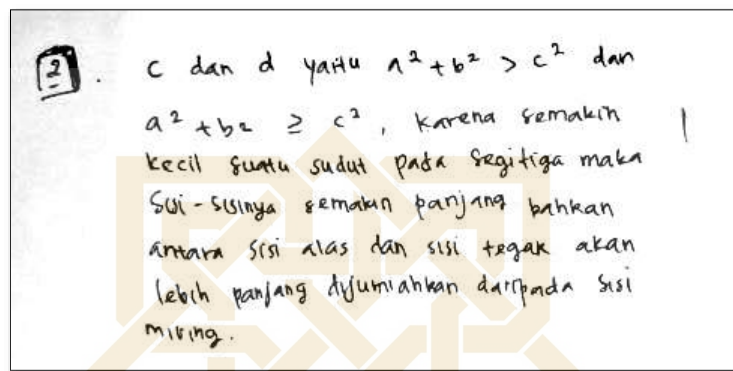 2. c dan d yaitu a² + b² > c² dan
a² + b² ≥ c², karena semakin
kecil suatu sudut pada segitiga maka
sisi-sisinya semakin panjang bahkan
antara sisi alas dan sisi tegak akan
lebih panjang dijumlahkan daripada sisi
miring.